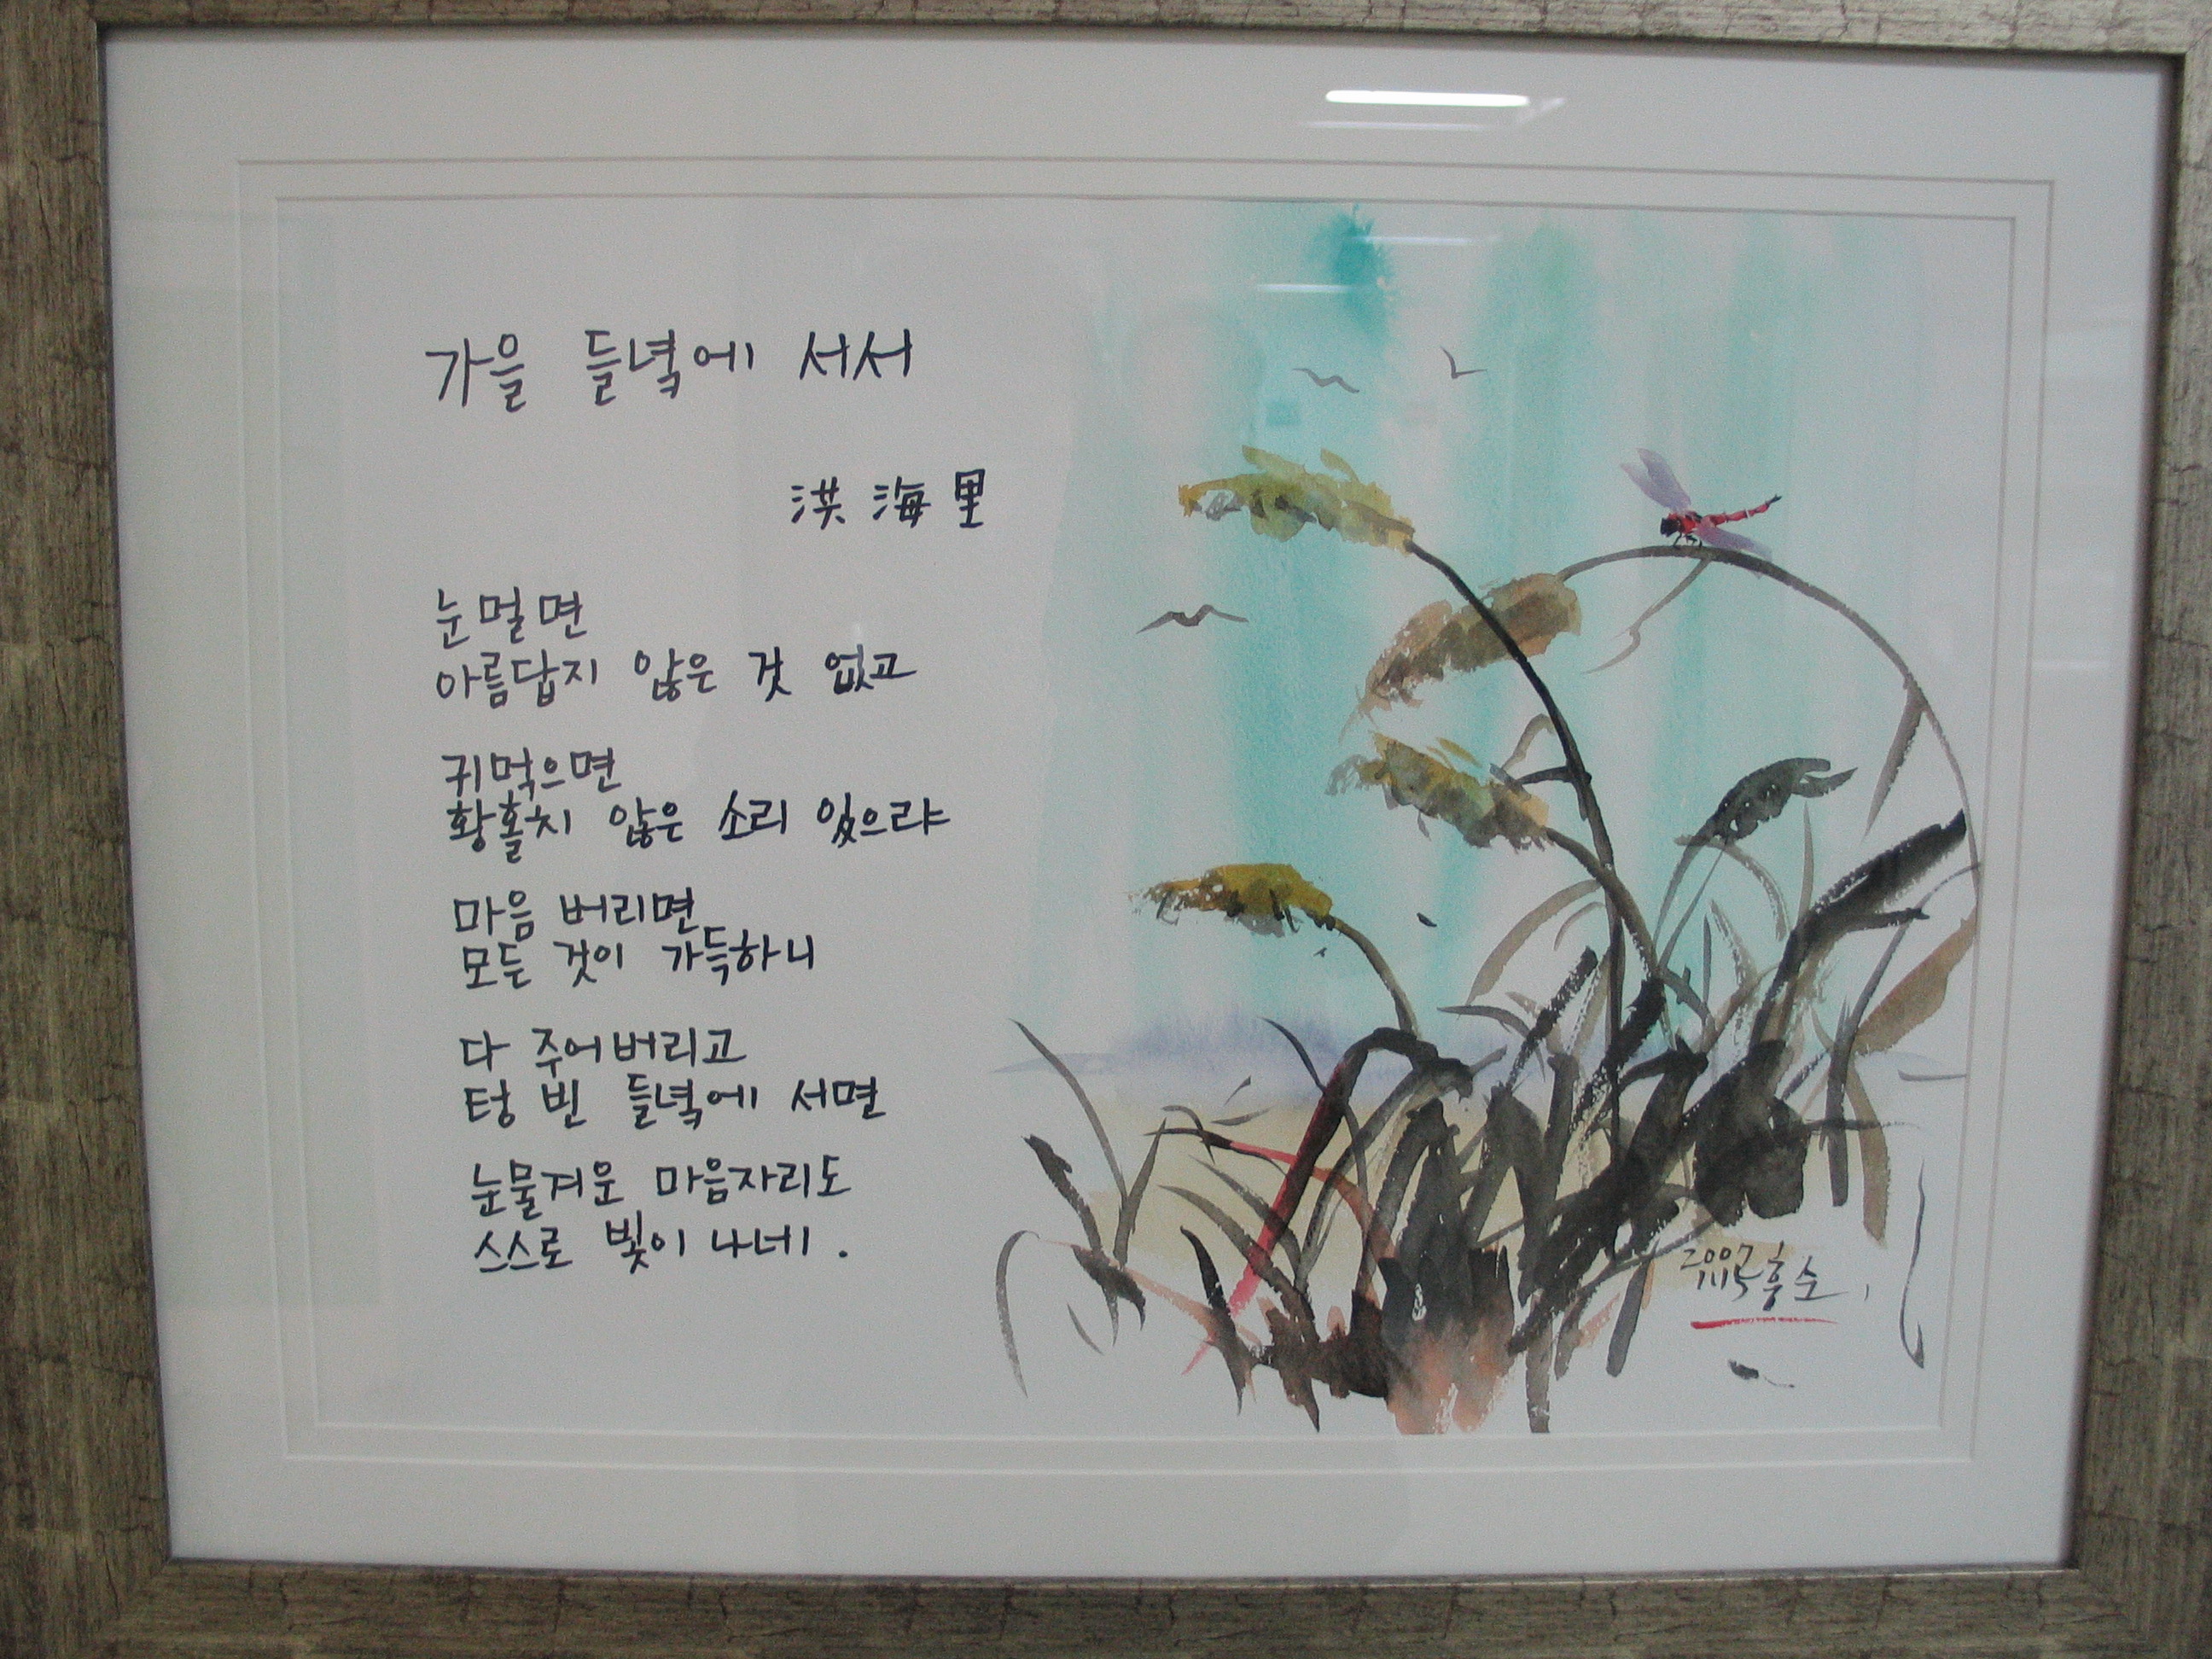 가을 들녘에 서서
洪 海 里
눈멀면
아름답지 않은 것 없고
귀먹으면
황홀치 않은 소리 있으랴
마음 버리면
모든 것이 가득하니
다 주어버리고
텅 빈 들녘에 서면
눈물겨운 마음자리도
스스로 빛이 나네.
2007
흥순